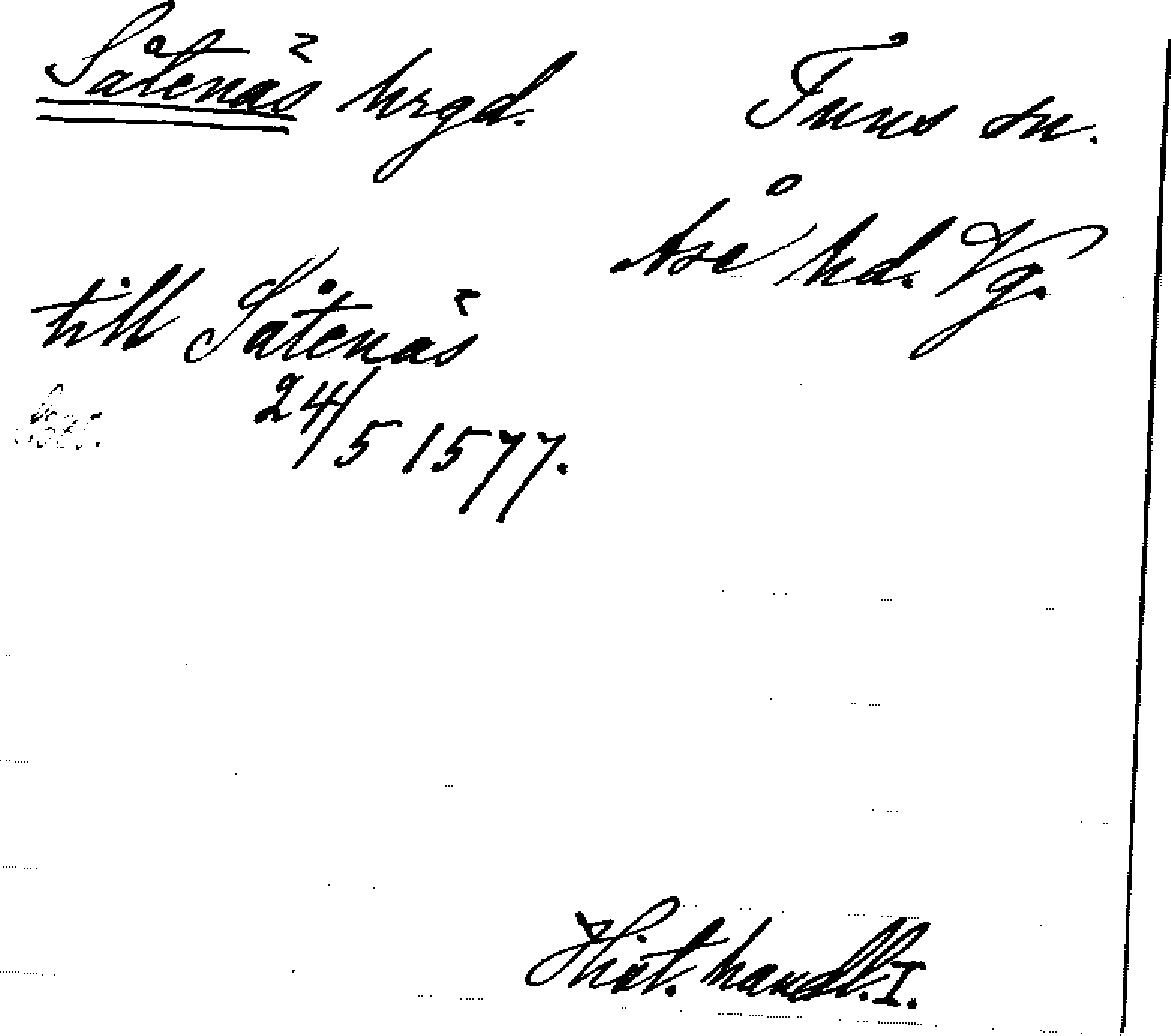 Såtenäs hrgd.
Tuns sn.
Åse hd. Vg.
till Såtenäs
24/5 1577.
Hist. handl. I.